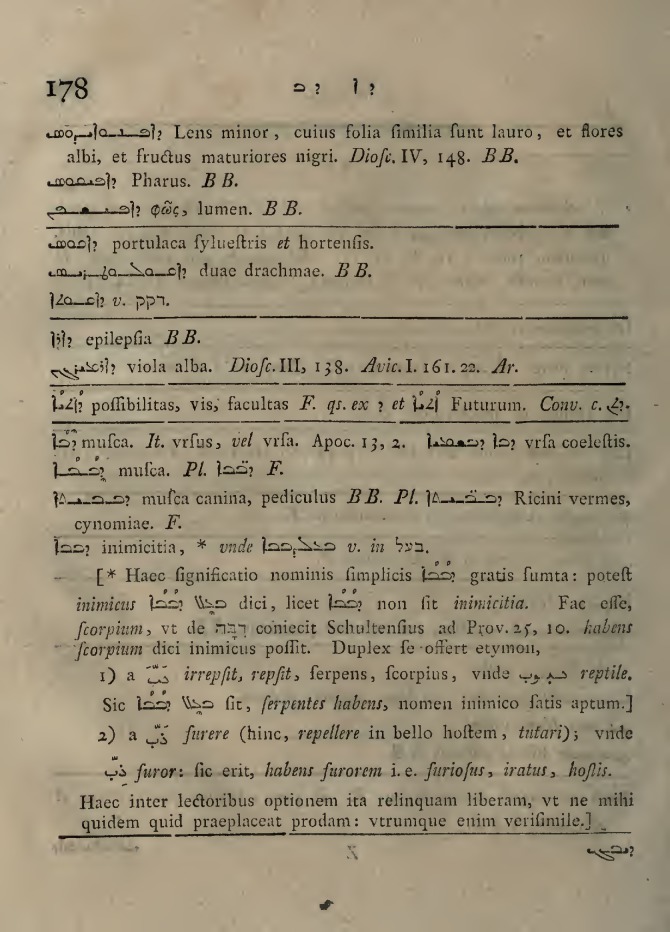 178 ܕܐ ܕܒ
Lens minor, cuius folia ſimilia ſunt lauro, et flores
albi, et fructus maturiores nigri. Dioſc. IV, 148. B B.
Pharus. B B.
φῶς, lumen. B B.
portulaca ſylueſtris et hortenſis.
duae drachmae. B B.
v. דקק.
epilepſia B B.
viola alba. Dioſc. III, 138. Avic. I. 161. 22. Ar.
poſſibilitas, vis, facultas F. qs. ex ܕ et Futurum. Conv. c.
ܕܒܐ muſca. It. vrſus, vel vrſa. Apoc. 13, 2. ܕܒܐ vrſa coeleſtis.
muſca. Pl. F.
muſca canina, pediculus B B. Pl. Ricini vermes,
cynomiae. F.
ܕܒܒܐ inimicitia, * vnde ܒܥܠܕܒܒܐ v. in בעל.
[* Haec ſignificatio nominis ſimplicis ܕܒܒܐ gratis ſumta: poteſt
inimicus ܒܥܠ ܕܒܒܐ dici, licet ܕܒܒܐ non ſit inimicitia. Fac eſſe,
ſcorpium, vt de דבה coniecit Schultenſius ad Prov. 25, 10. habens
ſcorpium dici inimicus poſſit. Duplex ſe offert etymon,
1) a دبّ irrepſit, repſit, ſerpens, ſcorpius, vnde reptile.
Sic ܒܥܠ ܕܒܒܐ ſit, ſerpentes habens, nomen inimico ſatis aptum.]
2) a ذبّ furere (hinc, repellere in bello hoſtem, tutari); vnde
ذبّ furor: ſic erit, habens furorem i. e. furioſus, iratus, hoſtis.
Haec inter lectoribus optionem ita relinquam liberam, vt ne mihi
quidem quid praeplaceat prodam: vtrumque enim veriſimile.]